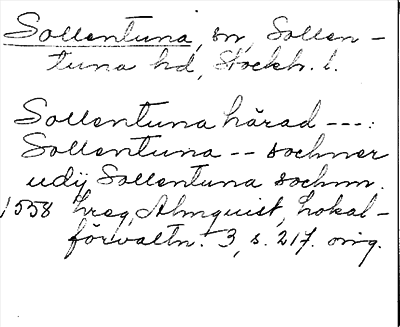 Sollentuna, sn, Sollen-
tuna hd, Stockh. l.
Sollentuna hårad ---:
Sollentuna -- sochner
udij Sollentuna sochnn.
1558 hreg, Almquist, Lokal-
förvaltn. 3, s. 217. orig.